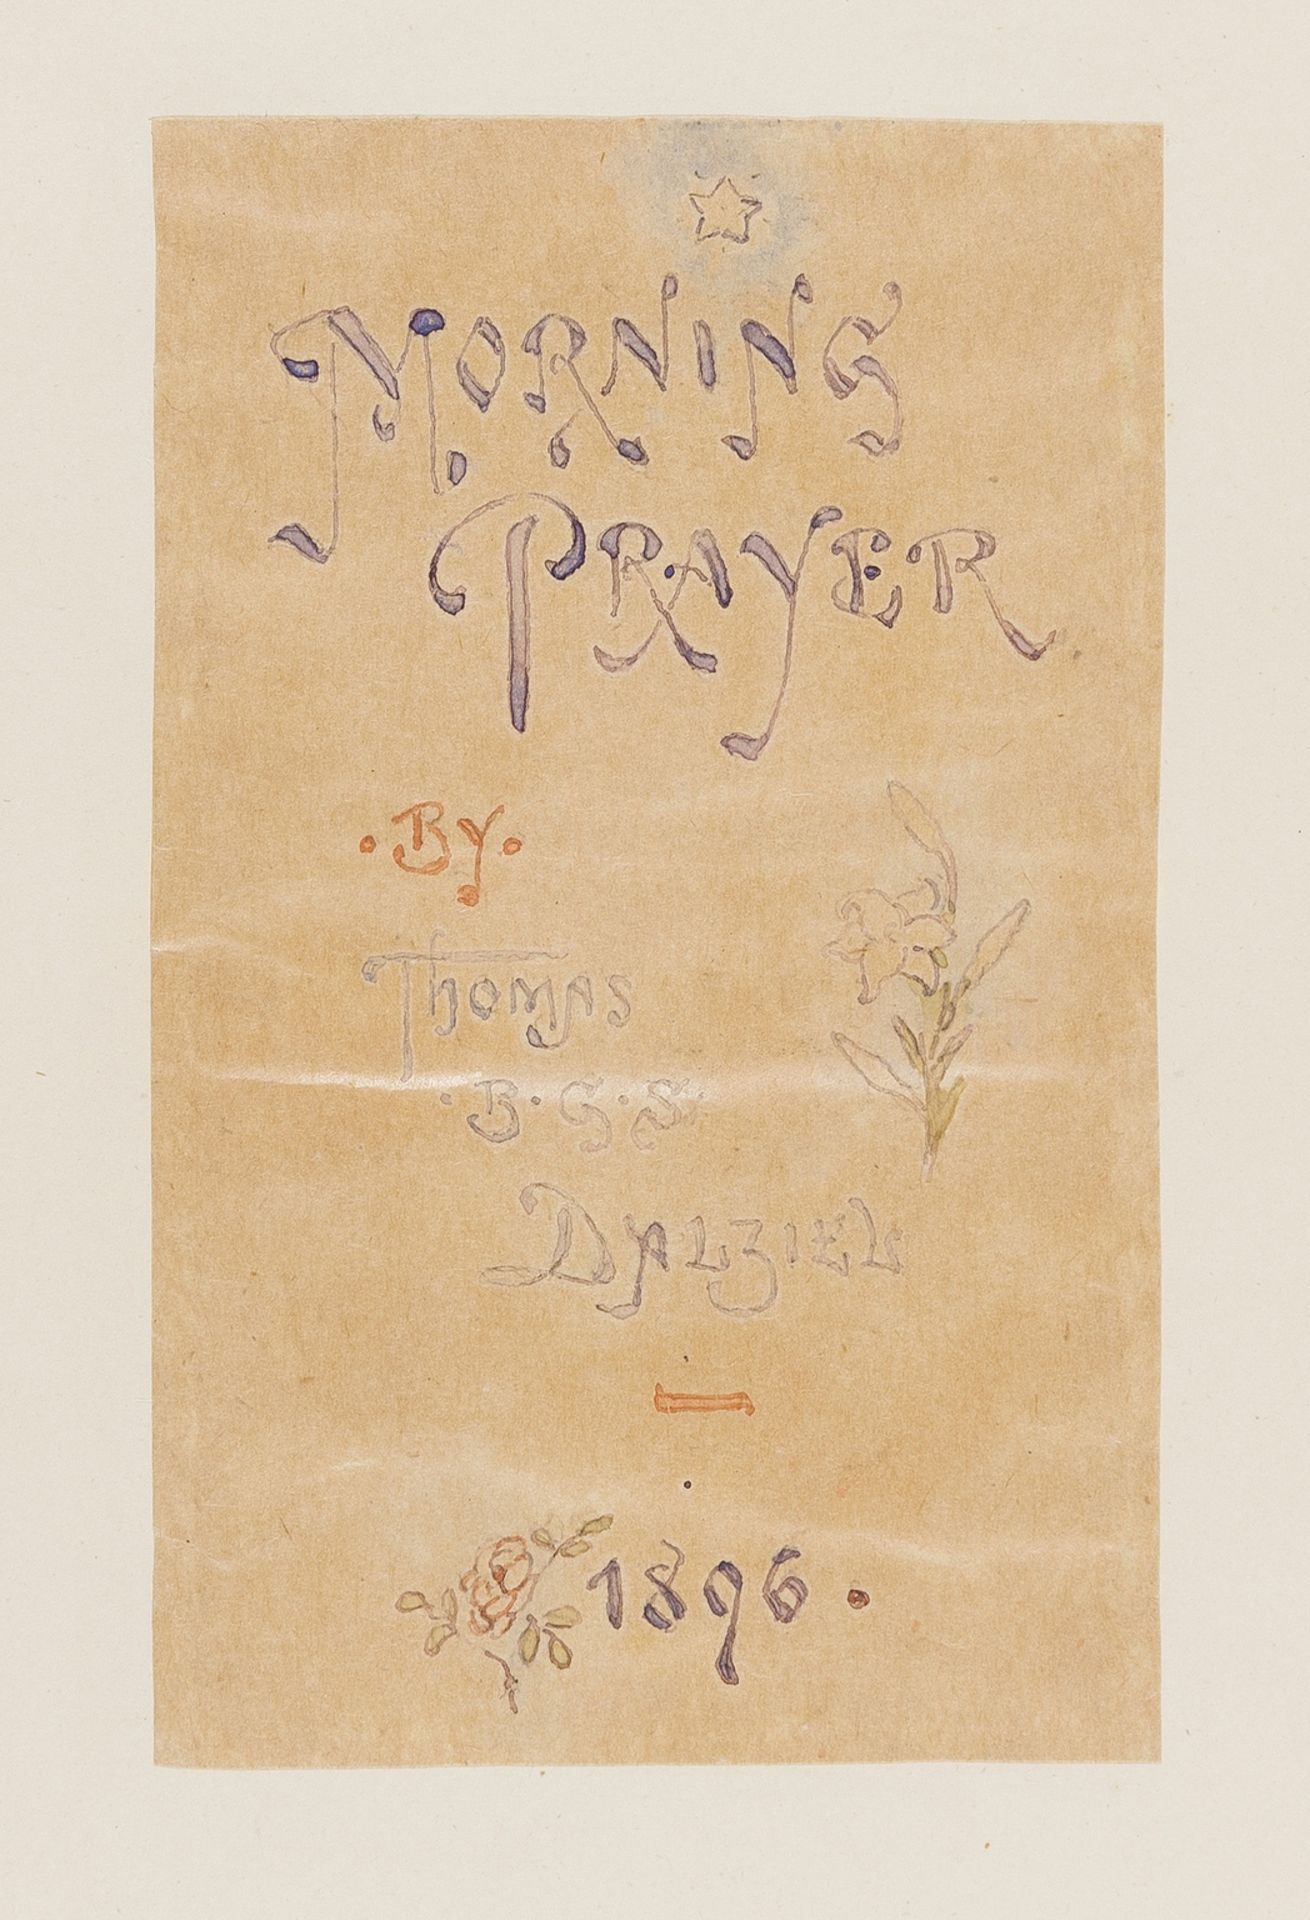 MORNING
PRAYER
· BY ·
THOMAS
· B · G · S ·
DALZIEL
1896 ·